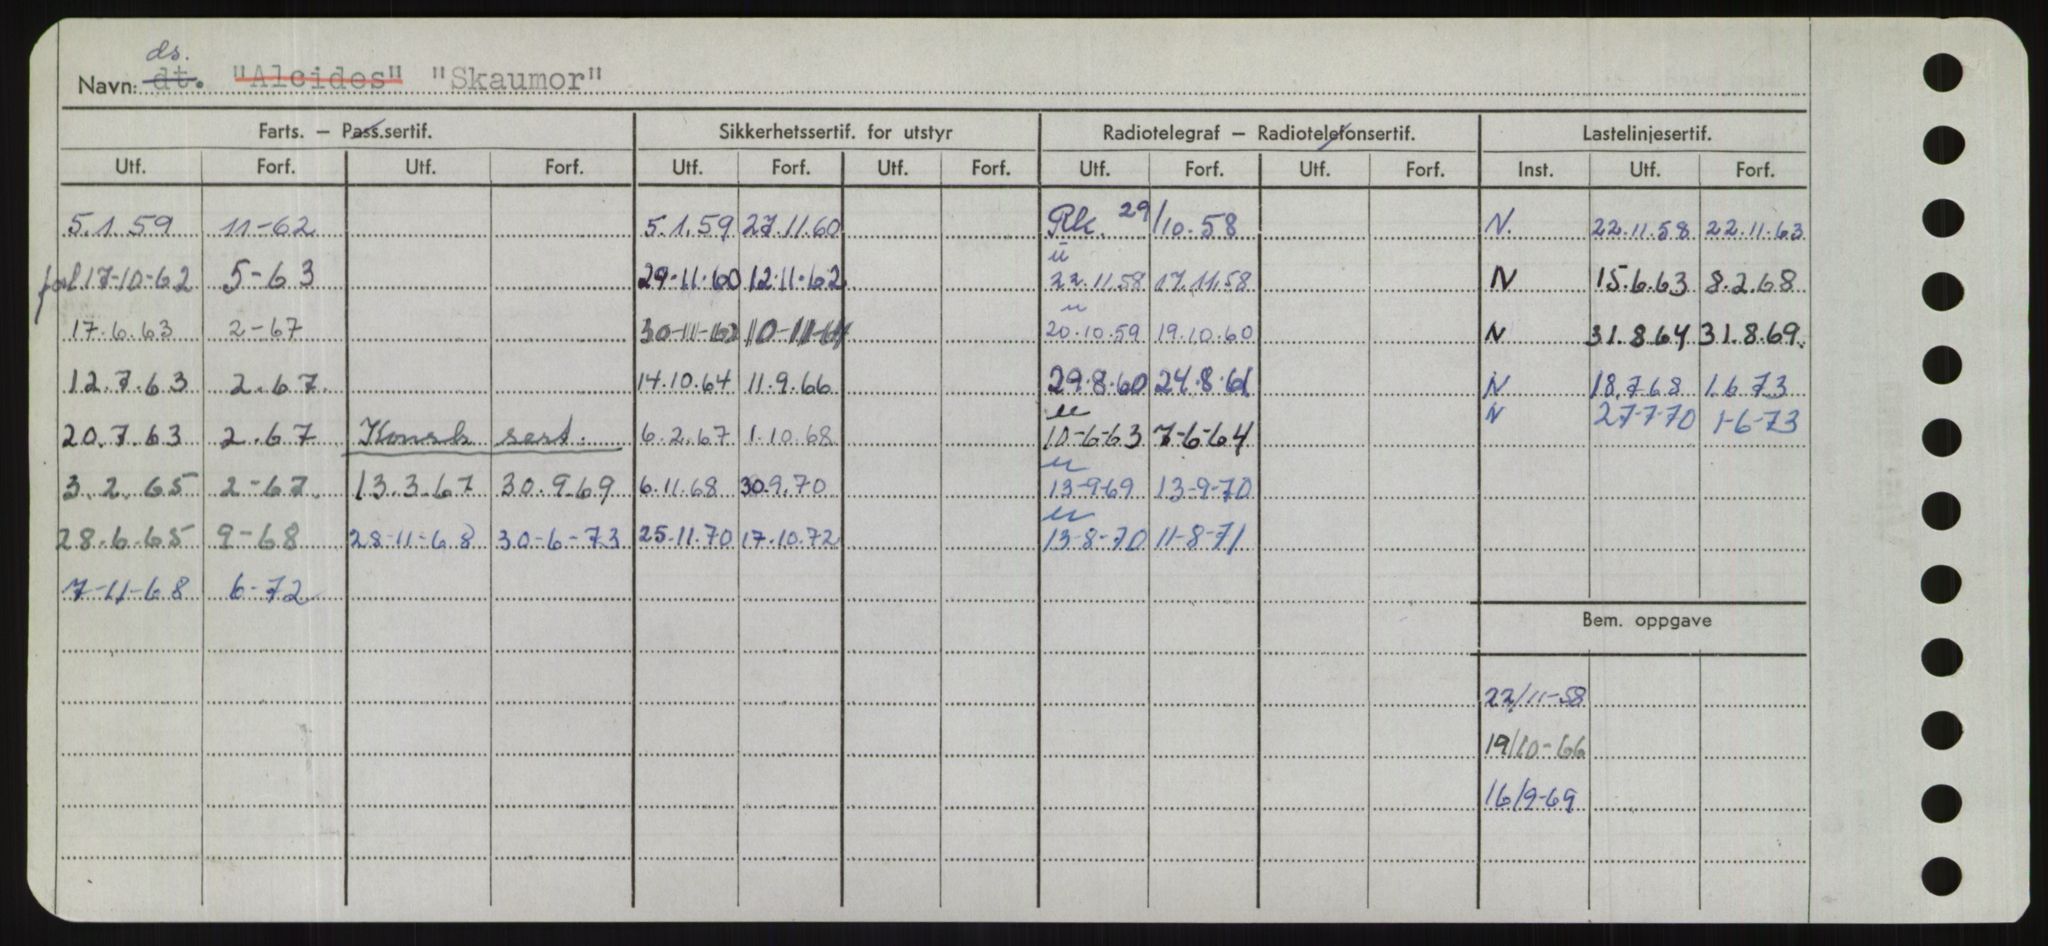 ds.
Navn: dt. "Alcides" "Skaumor"
Farts. — Pass.sertif. Sikkerhetssertif. for utstyr Radiotelegraf — Radiotelefonsertif. Lastelinjesertif.
Utf. Forf. Utf. Forf. Utf. Forf. Utf. Forf. Utf. Forf. Utf. Forf. Inst. Utf. Forf.
5.1.59 11-62 5.1.59 27.11.60 Rk. 29/10.58 N. 22.11.58 22.11.63
u
forl 17-10-62 5-63 29-11-60 12.11.62 22.11.58 17.11.58 N 15.6.63 8.2.68
u
17.6.63 2-67 30-11-62 10-11-64 20.10.59 19.10.60 N 31.8.64 31.8.69.
12.7.63 2.67. 14.10.64 11.9.66 29.8.60 24.8.61 N 18.7.68 1.6.73
u N 27-7-70 1-6-73
20.7.63 2.67 Konsk sert. 6.2.67 1.10.68 10-6-63 7-6-64
u
3.2.65 2-67. 13.3.67 30.9.69 6.11.68 30.9.70 13-9-69 13-9-70
u
28.6.65 9-68 28-11-68 30-6-73 25.11.70 17.10.72 13-8-70 11-8-71
7-11-68 6-72
Bem. oppgave
22/11-58
19/10-66
16/9-69